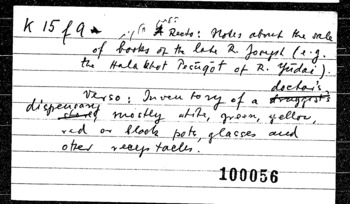 K 15 f 9a Recto: Notes about the sale
of books of the late R. Joseph (e.g.
the Halakhot Pesuqot of R. Yūdai).
doctor's
Verso: Inventory of a druggist's
dispensary mostly white, green, yellow,
red or black pots, glasses and
other receptacles.
100056